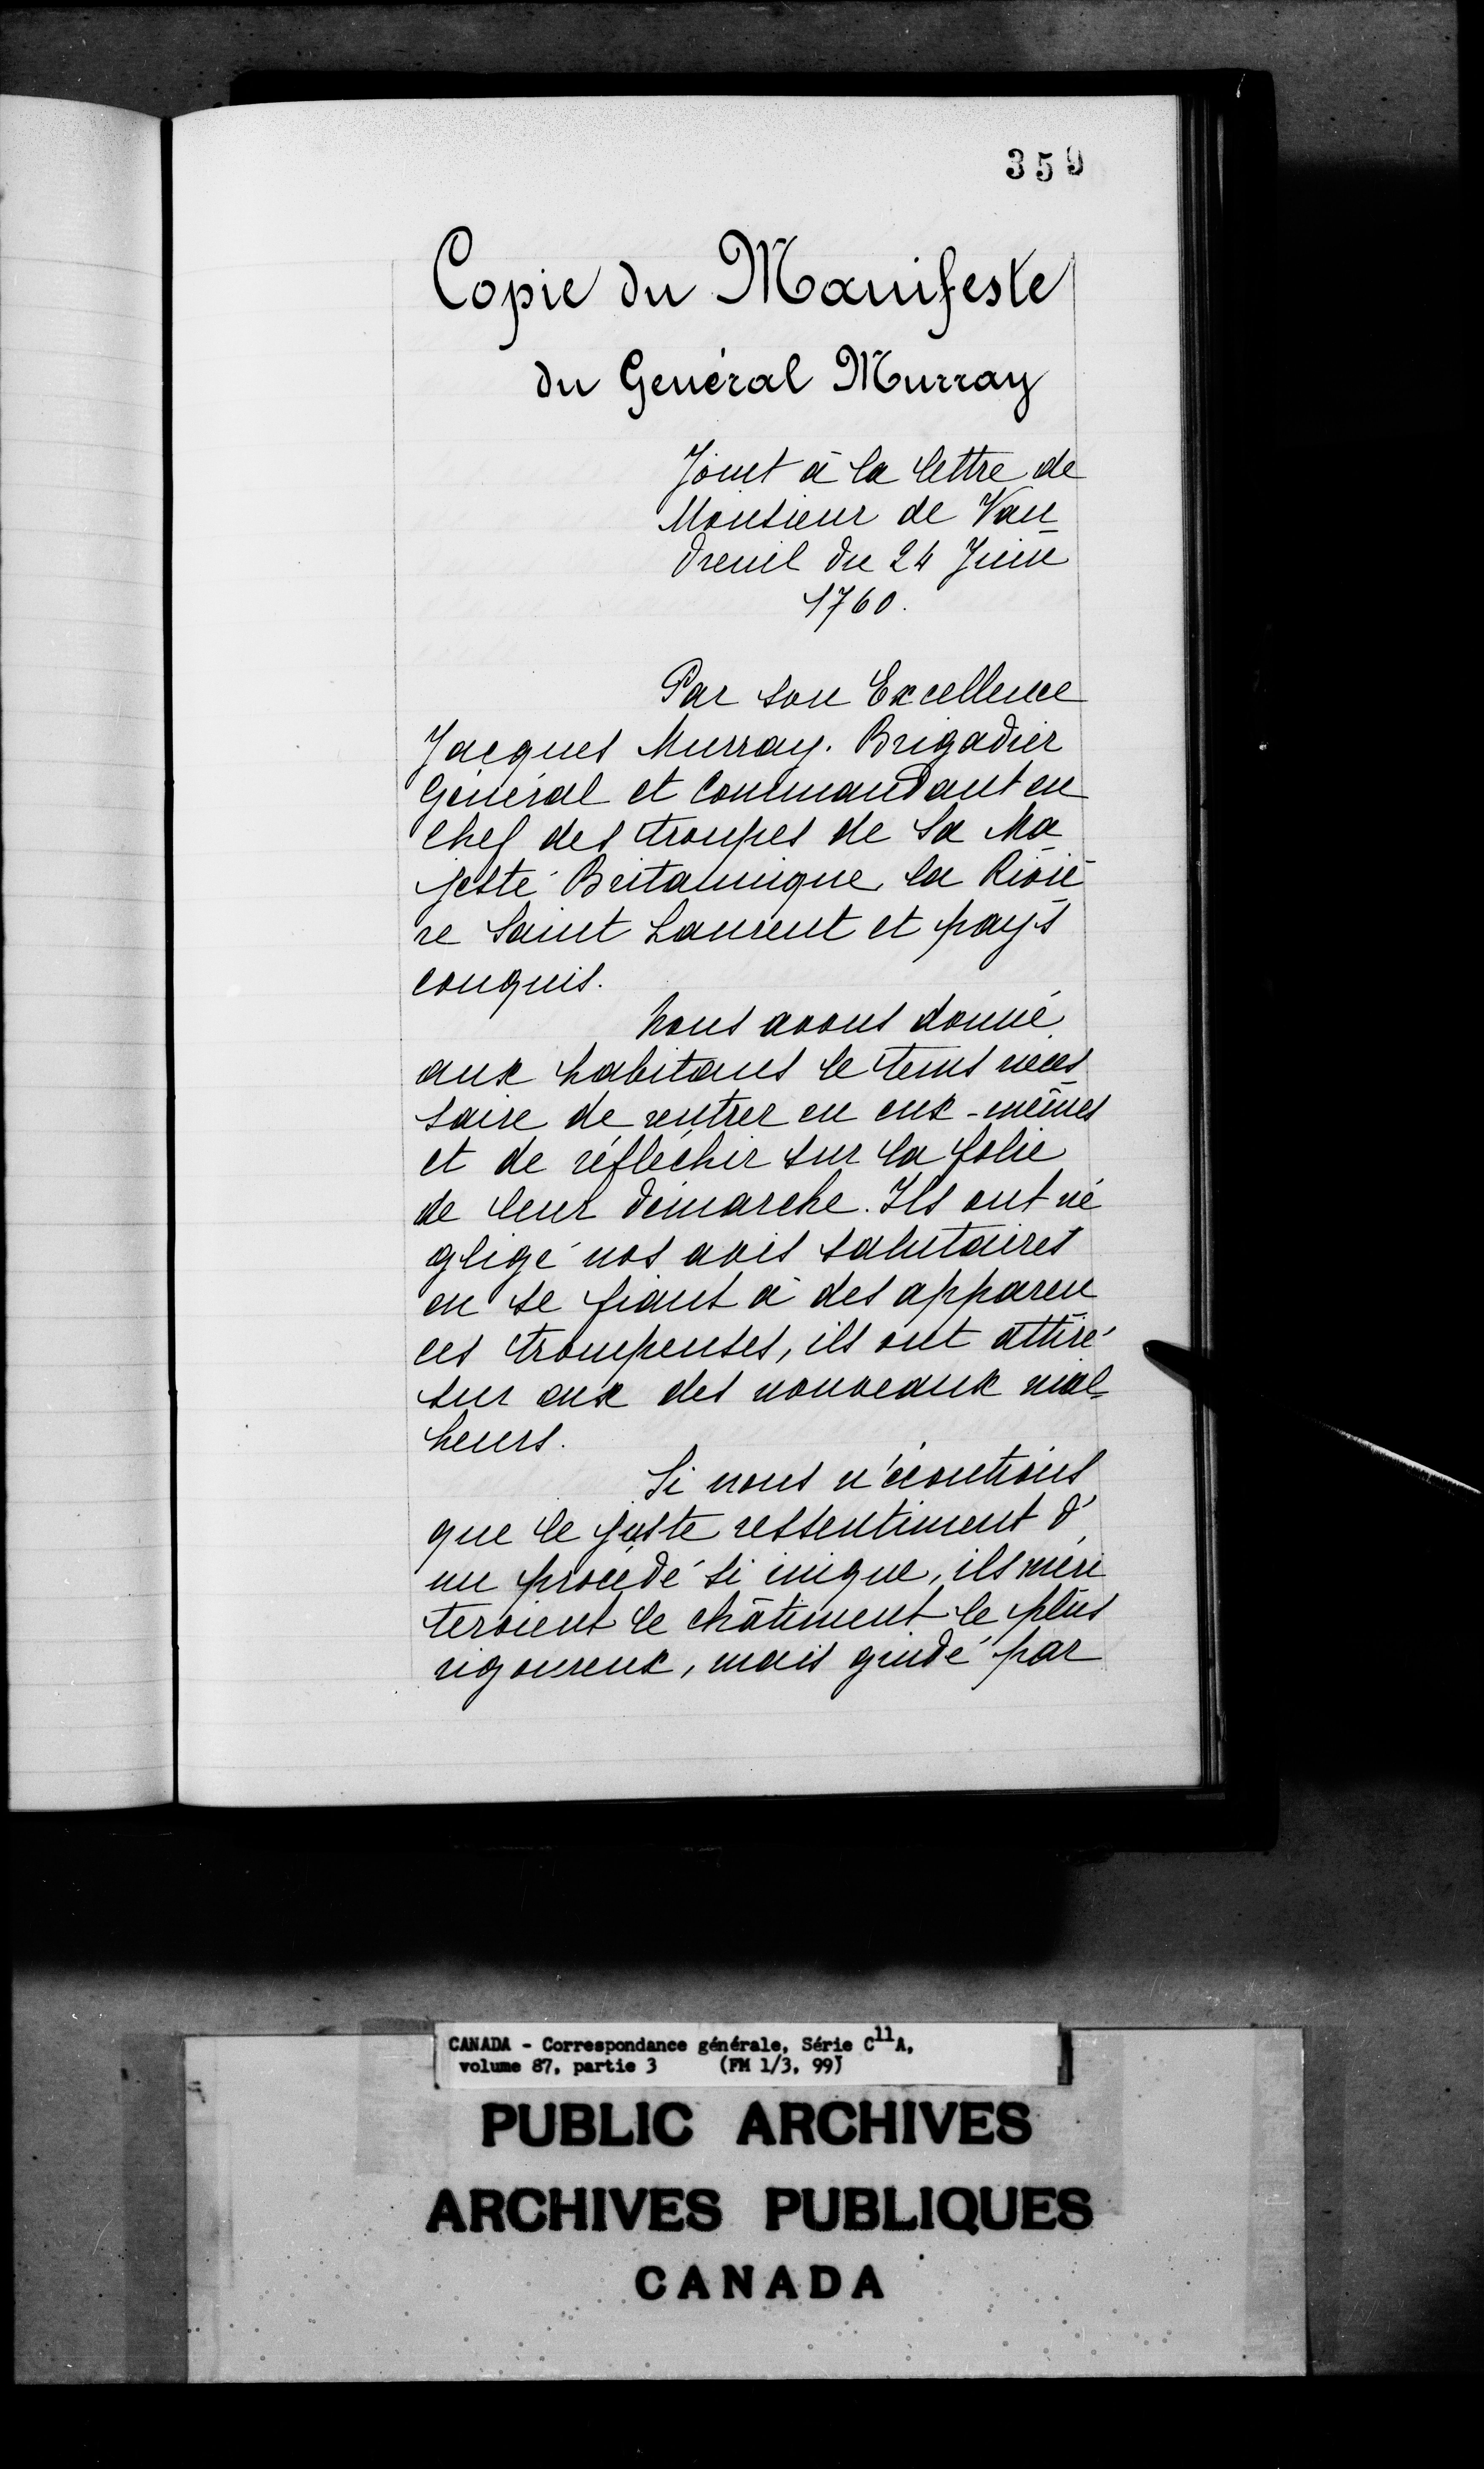 359
Copie du Manifeste
du Général Murray
Joint à la lettre de
Monsieur de Vau
dreuil du 24 Juin
1760.
Par son Excellence
Jacques Murray. Brigadier
Général et Commandant en
chef des troupes de Sa Ma
jesté Britannique, la Riviè
re Saint Laurent et pays
conquis.
Nous avons donné
aux habitans le tems néces
saire de rentrer en eux-mêmes
et de réfléchir sur la folie
de leur démarche. Ils ont né
gligé nos avis salutaires
en se fiant à des apparen
ces trompeuses, ils ont attiré
sur eux des nouveaux mal
heurs.
Si nous n'écoutions
que le juste ressentiment d'
un procédé si inique, ils méri
teroient le châtiment le plus
rigoureux, mais guidé par
CANADA - Correspondance générale, Série C11A,
volume 87, partie 3 (FM 1/3, 99)
PUBLIC ARCHIVES
ARCHIVES PUBLIQUES
CANADA